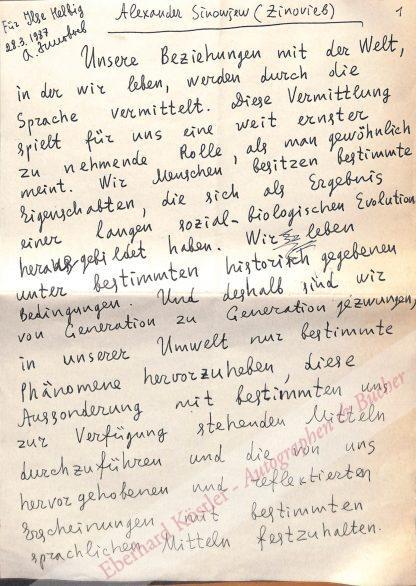 Für Ilse Helbig
28.3.1987
Alexander Sinowjew (Zinovieв)
1
Unsere Beziehungen mit der Welt,
in der wir leben, werden durch die
Sprache vermittelt. Diese Vermittlung
spielt für uns eine weit ernster
zu nehmende Rolle, als man gewöhnlich
meint. Wir Menschen besitzen bestimmte
Eigenschaften, die sich als Ergebnis
einer langen sozial-biologischen Evolution
herausgebildet haben. Wir leben
unter bestimmten historisch gegebenen
Bedingungen. Und deshalb sind wir
von Generation zu Generation gezwungen,
in unserer Umwelt nur bestimmte
Phänomene hervorzuheben, diese
Aussonderung mit bestimmten uns
zur Verfügung stehenden Mitteln
durchzuführen und die von uns
hervorgehobenen und reflektierten
Erscheinungen mit bestimmten
sprachlichen Mitteln festzuhalten.
Eberhard Köstler - Autographen & Bücher